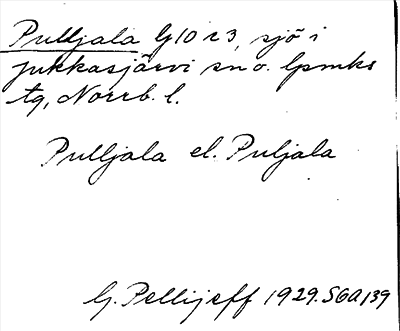 Pulljala G10 r3, sjö i
Jukkasjärvi sn o. lpmks
tg, Norrb. l.
Pulljala el. Puljala
G. Pellijeff 1929. SGA 139